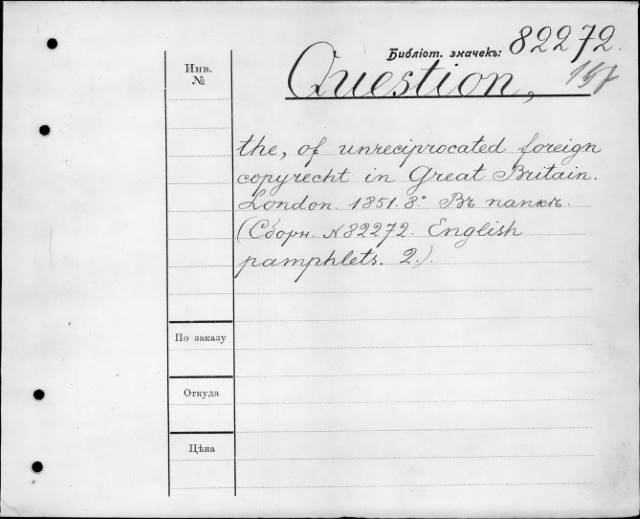 Библіот. значекъ: 82272.
Инв.
№
Question, 157
the, of unreciprocated foreign
copyrecht in Great Britain.
London. 1851. 8°. Въ папкѣ.
(Сборн. №82272. English
pamphlets. 2.).
По заказу
Откуда
Цѣна